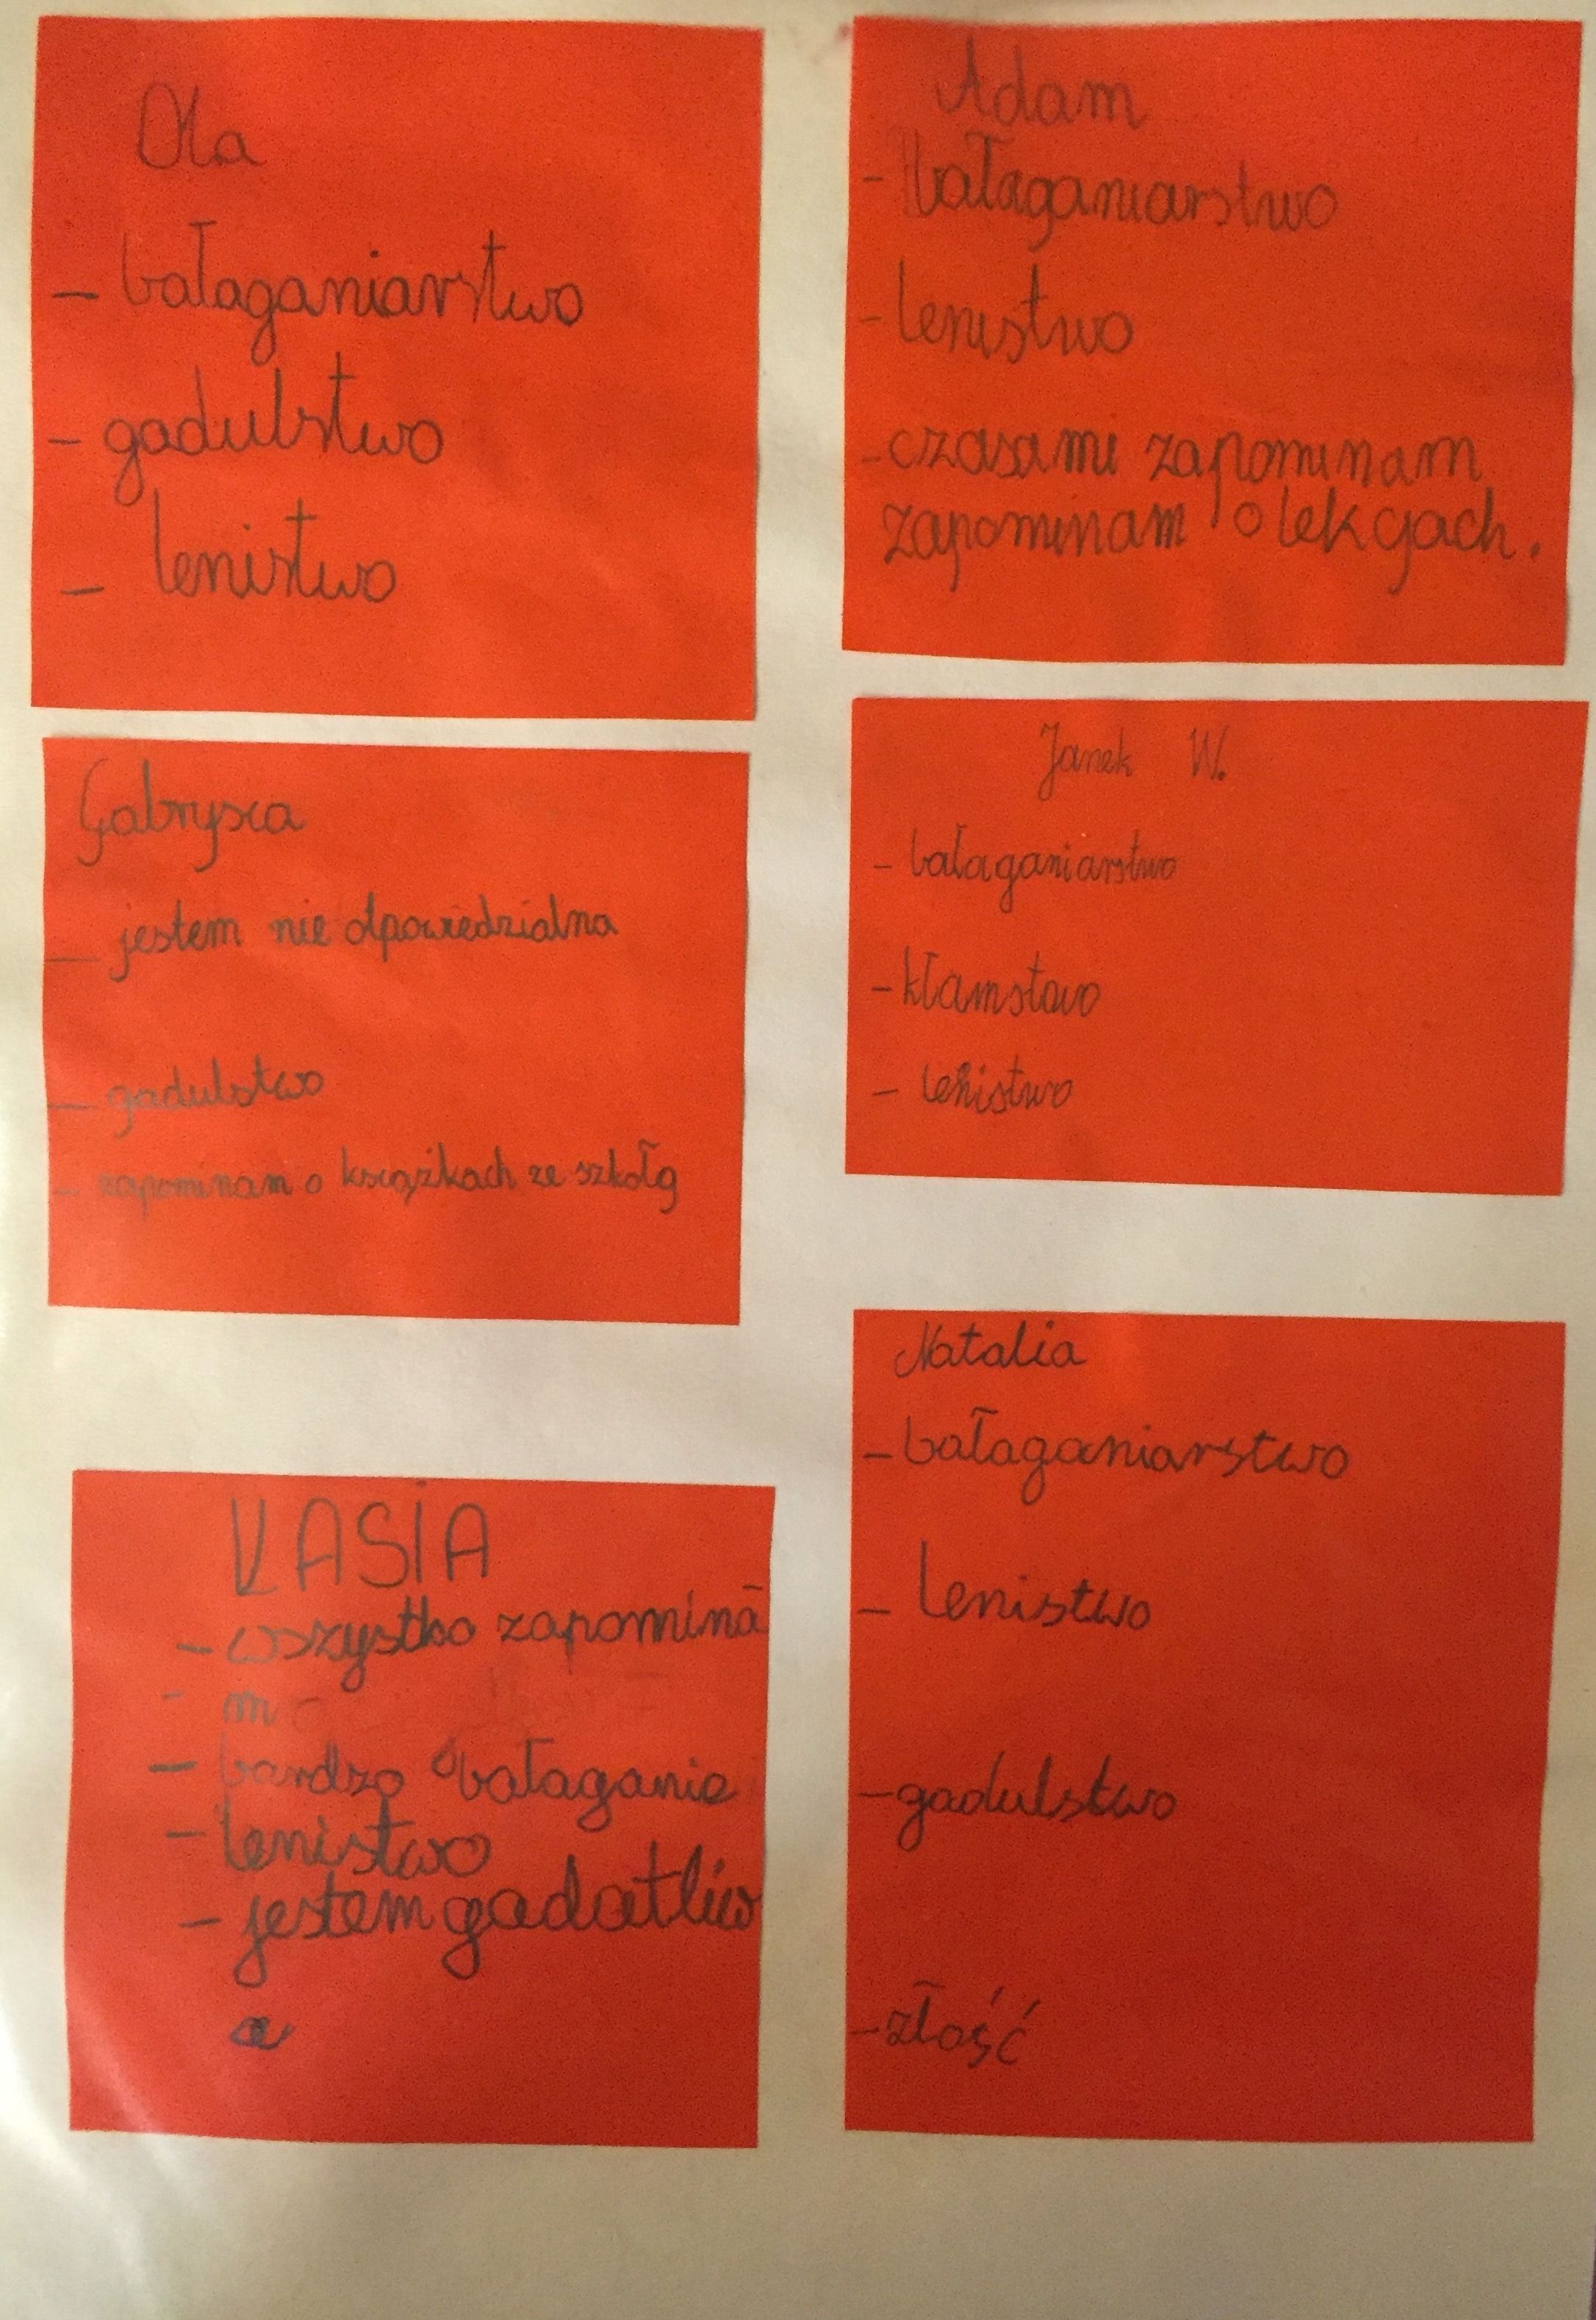 Ola
- bałaganiarstwo
- gadulstwo
- lenistwo
Adam
- bałaganiarstwo
- lenistwo
- czasami zapominam
zapominam o lekcjach.
Gabrysia
- jestem nie odpowiedzialna
- gadulstwo
- zapominam o książkach ze szkołą
Janek W.
- bałaganiarstwo
- kłamstwo
- lenistwo
KASIA
- wszystko zapomina
- m
- bardzo bałaganie
- lenistwo
- jestem gadatliw
a
Natalia
- bałaganiarstwo
- lenistwo
- gadulstwo
- złość